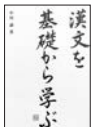 漢文を
基礎から学ぶ